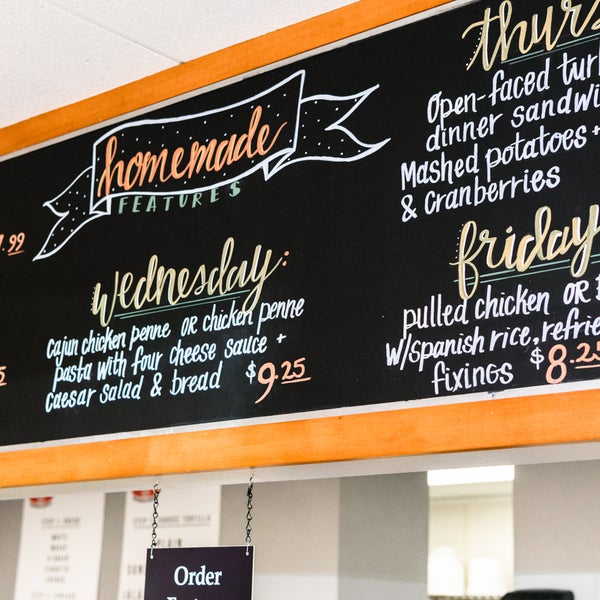 homemade
FEATURES
.99
wednesday:
cajun chicken penne OR chicken penne
pasta with four cheese sauce +
caesar salad & bread $9.25
thurs
Open-faced turk
dinner sandwi
Mashed potatoes +
& Cranberries
friday
pulled chicken OR
w/spanish rice, refrie
fixings $8.25
Order